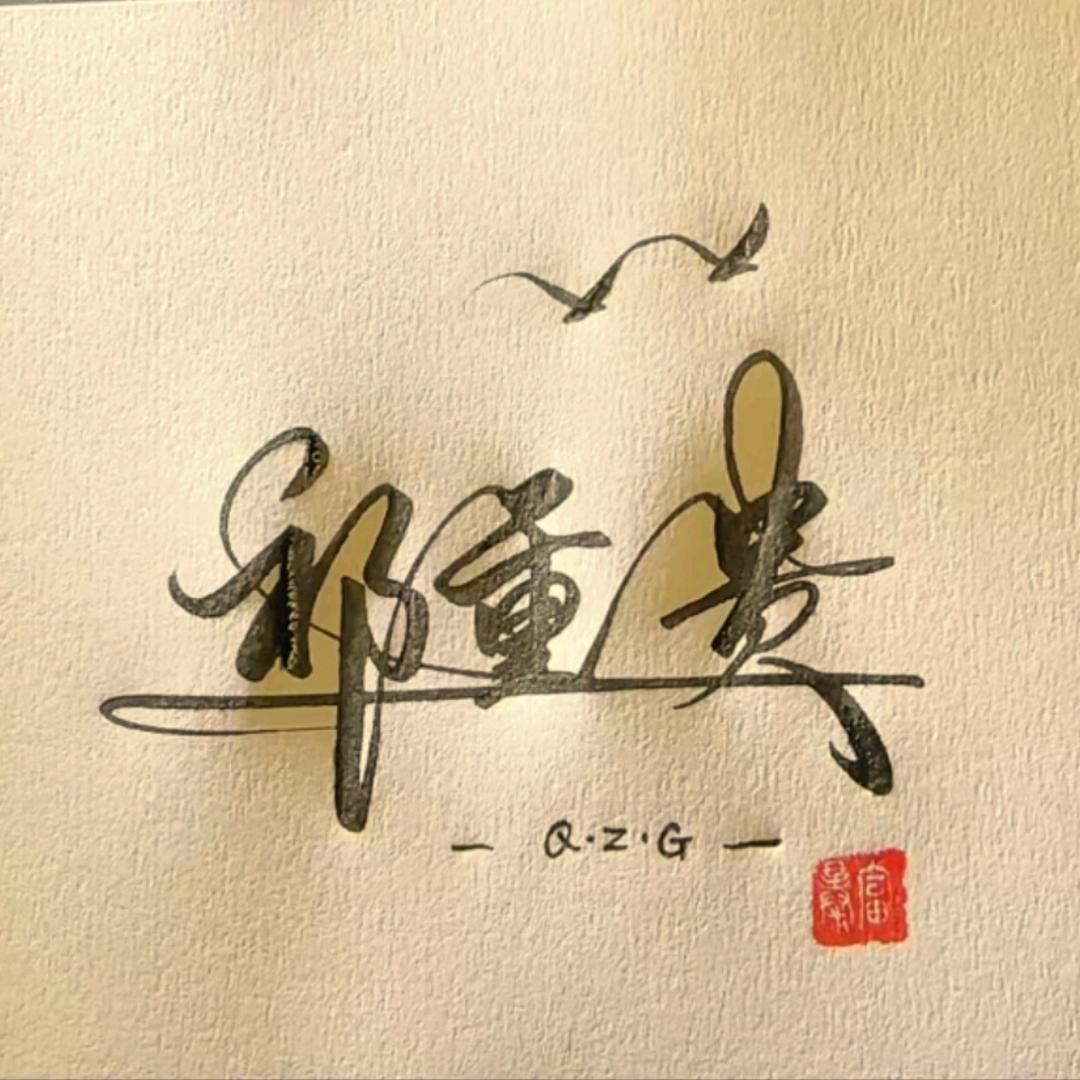 邱重贵
— Q·Z·G —